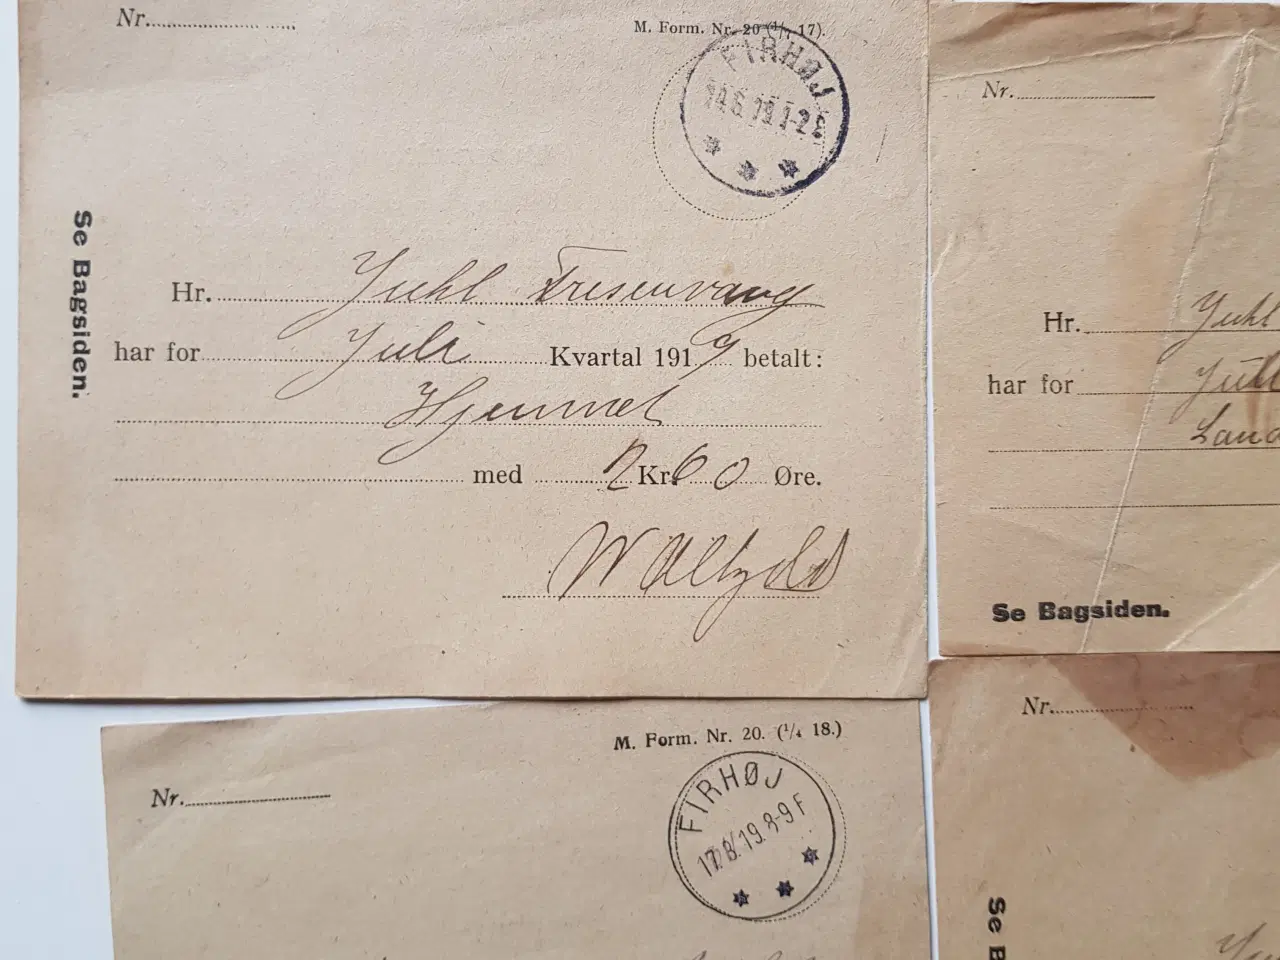 Nr.
M. Form. Nr. 20 (1/1 17).
FIRHØJ
14.6.19.1-2 E
Se Bagsiden.
Hr. Juhl Fresenvang
har for Juli Kvartal 1919 betalt:
Hjemmet
med 2 Kr. 60 Øre.
Nr.
Hr. Juhl
har for
Se Bagsiden.
M. Form. Nr. 20. (1/4 18.)
Nr.
FIRHØJ
17.8.19.8-9 F
Nr.
Se B